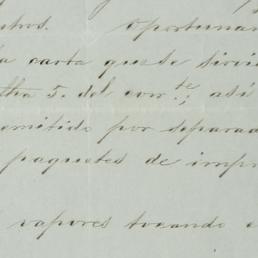 stros. oportunam
la carta que se sirvi
cha 5. del corr.te; así
emitido por separad
paquetes de impr
vapores tocando e